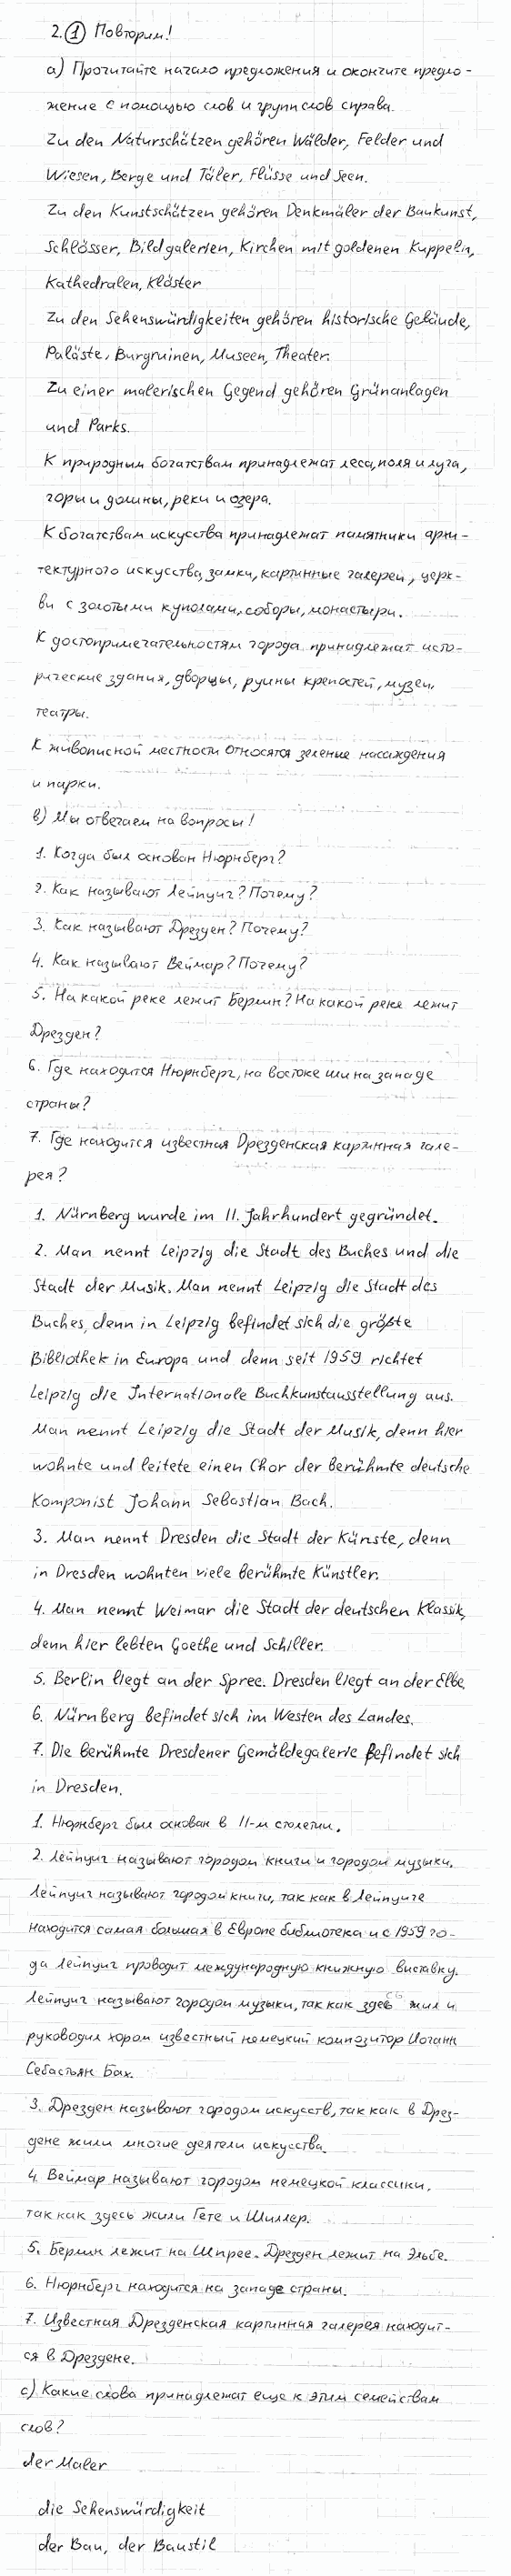 2. ① Повторим!
а) Прочитайте начало предложения и окончите предло-
жение с помощью слов и групп слов справа.
Zu den Naturschätzen gehören Wälder, Felder und
Wiesen, Berge und Täler, Flüsse und Seen.
Zu den Kunstschätzen gehören Denkmäler der Baukunst,
Schlösser, Bildgalerien, Kirchen mit goldenen Kuppeln,
Kathedralen, Klöster
Zu den Sehenswürdigkeiten gehören historische Gebäude,
Paläste, Burgruinen, Museen, Theater.
Zu einer malerischen Gegend gehören Grünanlagen
und Parks.
К природным богатствам принадлежат леса, поля и луга,
горы и долины, реки и озера.
К богатствам искусства принадлежат памятники архи-
тектурного искусства, замки, картинные галереи, церк-
ви с золотыми куполами, соборы, монастыри.
К достопримечательностям города принадлежат исто-
рические здания, дворцы, руины крепостей, музеи,
театры.
К живописной местности относятся зеленые насаждения
и парки.
b) Мы отвечаем на вопросы!
1. Когда был основан Нюрнберг?
2. Как называют Лейпциг? Почему?
3. Как называют Дрезден? Почему?
4. Как называют Веймар? Почему?
5. На какой реке лежит Берлин? На какой реке лежит
Дрезден?
6. Где находится Нюрнберг, на востоке или на западе
страны?
7. Где находится известная Дрезденская картинная гале-
рея?
1. Nürnberg wurde im 11. Jahrhundert gegründet.
2. Man nennt Leipzig die Stadt des Buches und die
Stadt der Musik. Man nennt Leipzig die Stadt des
Buches, denn in Leipzig befindet sich die größte
Bibliothek in Europa und denn seit 1959 richtet
Leipzig die Internationale Buchkunstausstellung aus.
Man nennt Leipzig die Stadt der Musik, denn hier
wohnte und leitete einen Chor der berühmte deutsche
Komponist Johann Sebastian Bach.
3. Man nennt Dresden die Stadt der Künste, denn
in Dresden wohnten viele berühmte Künstler.
4. Man nennt Weimar die Stadt der deutschen Klassik,
denn hier lebten Goethe und Schiller.
5. Berlin liegt an der Spree. Dresden liegt an der Elbe.
6. Nürnberg befindet sich im Westen des Landes.
7. Die berühmte Dresdener Gemäldegalerie befindet sich
in Dresden.
1. Нюрнберг был основан в 11-м столетии.
2. Лейпциг называют городом книги и городом музыки.
Лейпциг называют городом книги, так как в Лейпциге
находится самая большая в Европе библиотека и с 1959 го-
да Лейпциг проводит международную книжную выставку.
Лейпциг называют городом музыки, так как здесь жил и
руководил хором известный немецкий композитор Иоганн
Себастьян Бах.
3. Дрезден называют городом искусств, так как в Дрез-
дене жили многие деятели искусства.
4. Веймар называют городом немецкой классики,
так как здесь жили Гете и Шиллер.
5. Берлин лежит на Шпрее. Дрезден лежит на Эльбе.
6. Нюрнберг находится на западе страны.
7. Известная Дрезденская картинная галерея находит-
ся в Дрездене.
c) Какие слова принадлежат еще к этим семействам
слов?
der Maler
die Sehenswürdigkeit
der Bau, der Baustil